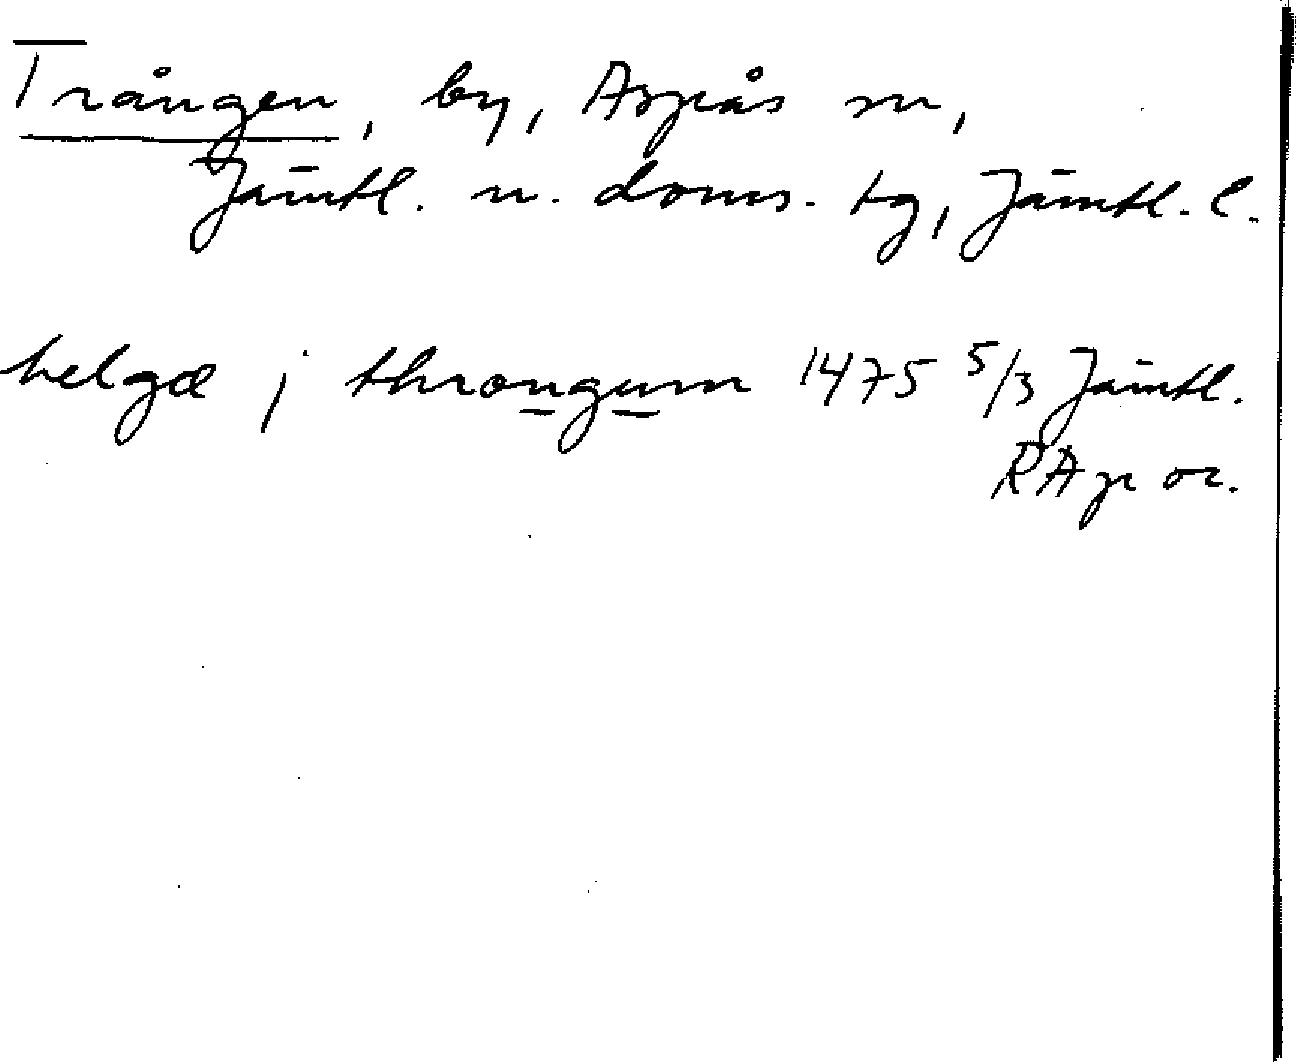 Trången, by, Aspås sn,
Jämtl. n. doms. tg, Jämtl. l.
helgæ j throngum 1475 5/3 Jämtl.
RAp or.